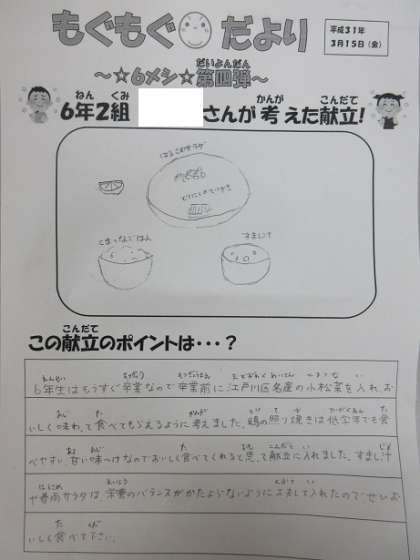 もぐもぐだより
平成31年
3月15日(金)
だいよんだん
～☆6メシ☆第四弾～
ねん くみ かんが こんだて
6年2組 さんが考えた献立!
はるさめサラダ
とりにくのてりやき
こまつなごはん
すましじる
こんだて
この献立のポイントは・・・?
6年生はもうすぐ卒業なので卒業前に江戸川区名産の小松菜を入れ、お
いしく味わって食べてもらえるように考えました。鶏の照り焼きは低学年でも食
べやすい、甘い味つけなのでおいしく食べてくれると思って献立に入れました。すまし汁
や春雨サラダは栄養のバランスがかたよらないように工夫して入れたのでぜひお
いしく食べて下さい。